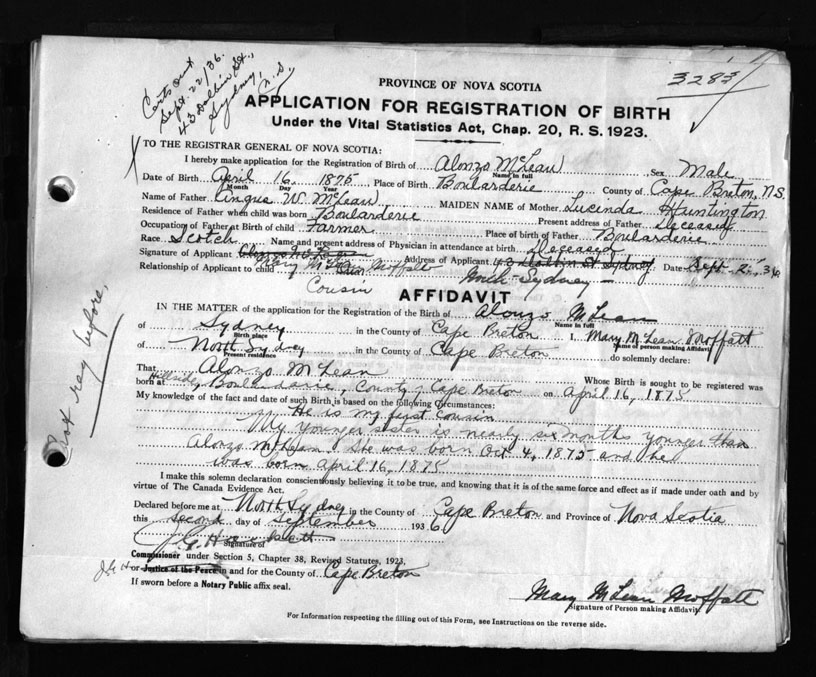 Certs out
Sept. 22/36.
43 Dolbin St.,
Sydney,
N.S.,
3283
PROVINCE OF NOVA SCOTIA
APPLICATION FOR REGISTRATION OF BIRTH
Under the Vital Statistics Act, Chap. 20, R. S. 1923.
TO THE REGISTRAR GENERAL OF NOVA SCOTIA:
I hereby make application for the Registration of Birth of Alonzo McLean Sex Male
Name in full
Date of Birth April 16 1875 Place of Birth Boularderie County of Cape Breton, N.S.
Month Day Year
Name of Father Angus W. McLean MAIDEN NAME of Mother Lucinda Huntington
Residence of Father when child was born Boularderie Present address of Father Deceased
Occupation of Father at Birth of child Farmer Place of birth of Father Boularderie
Race Scotch Name and present address of Physician in attendance at birth Deceased
Signature of Applicant Mary McLean Moffatt Address of Applicant 43 Dolbin St Sydney Date Sept. 2, 36
North Sydney
Relationship of Applicant to child
Cousin
AFFIDAVIT
IN THE MATTER of the application for the Registration of the Birth of Alonzo McLean
Name in full
of Sydney in the County of Cape Breton I, Mary McLean Moffatt
Birth place Name of person making Affidavit
of North Sydney in the County of Cape Breton do solemnly declare:
Present residence
That Alonzo McLean Whose Birth is sought to be registered was
born at Hillside, Boularderie, County of Cape Breton on April 16, 1875
My knowledge of the fact and date of such Birth is based on the following Circumstances:
He is my first cousin
My younger sister is nearly six months younger than
Alonzo McLean. She was born Oct 4, 1875 and he
was born April 16, 1875
I make this solemn declaration conscientiously believing it to be true, and knowing that it is of the same force and effect as if made under oath and by
virtue of The Canada Evidence Act.
Declared before me at North Sydney in the County of Cape Breton and Province of Nova Scotia
this second day of September 1936
Signature of
Commissioner under Section 5, Chapter 38, Revised Statutes, 1923,
or Justice of the Peace in and for the County of Cape Breton
If sworn before a Notary Public affix seal.
Mary McLean Moffatt
Signature of Person making Affidavit
For Information respecting the filling out of this Form, see Instructions on the reverse side.